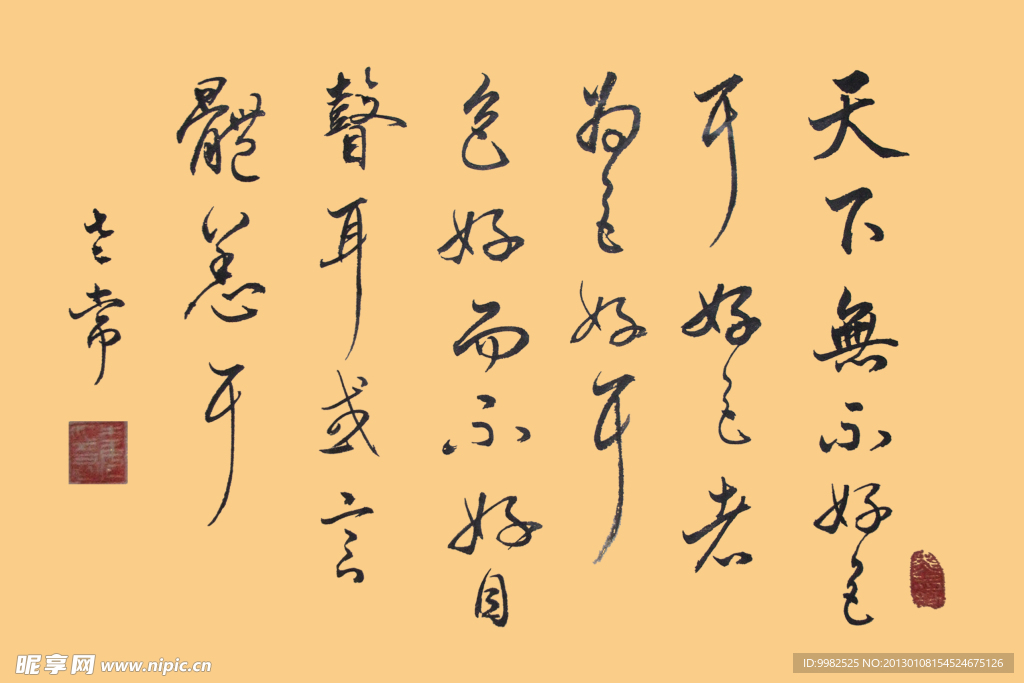 天下無不好色
耳好色者
為色好耳
色好而不好目
聲耳或言
體恙耳
老常
昵享网 www.nipic.cn
ID:9982525 NO:20130108154524675126